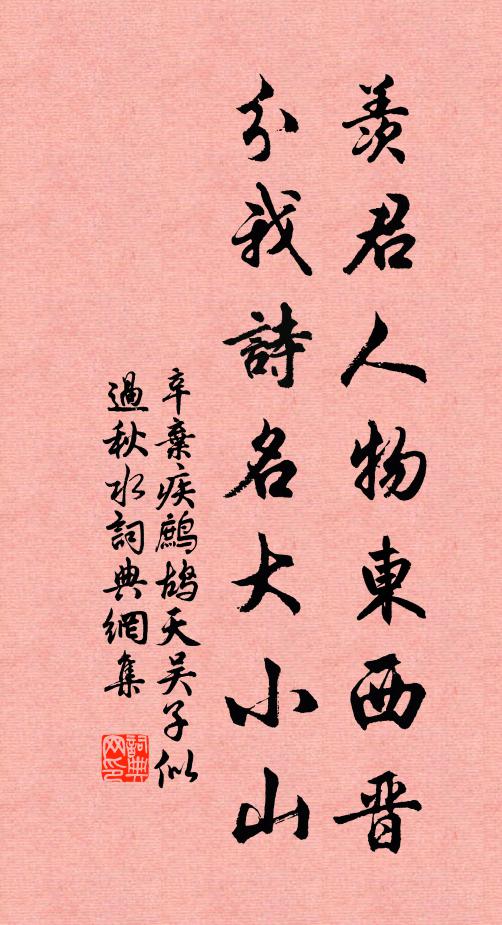 羨君人物東西晋
分我詩名大小山
辛棄疾鷓鴣天吴子似
過秋水詞典網集
詞典
网印